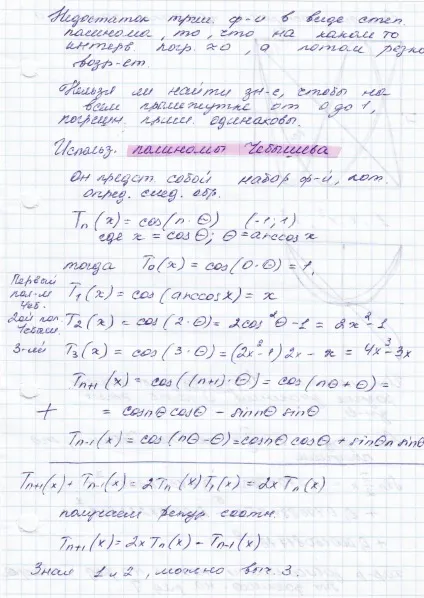 Недостаток прим. ф-и в виде степ.
полинома, то, что на каком то
интерв погр. хо, а потом резко
возр-ет
Нельзя ли найти зн-е, чтобы на
всем промежутке от 0 до 1,
погрешн. прим. одинаковы.
Использ. полиномы Чебышева
Он предст. собой набор ф-й, кот.
опред. след. обр.
Tn(x) = cos(n·θ) (-1; 1)
где x = cosθ; θ = arccosx
тогда T0(x) = cos(0·θ) = 1,
Первый пол-м Чеб. T1(x) = cos(arccosx) = x
2ой пол. Чебыш. T2(x) = cos(2·θ) = 2cos²θ-1 = 2x²-1
3-ий T3(x) = cos(3·θ) = (2x²-1)2x - x = 4x³-3x
Tn+1(x) = cos((n+1)·θ) = cos(nθ+θ) =
+ = cosnθ cosθ - sinnθ sinθ
Tn-1(x) = cos(nθ-θ) = cosnθ cosθ + sinθn sinθ
Tn+1(x) + Tn-1(x) = 2Tn(x)T1(x) = 2xTn(x)
получаем рекур. соотн.
Tn+1(x) = 2xTn(x) - Tn-1(x)
Зная 1 и 2, можно выч. 3.